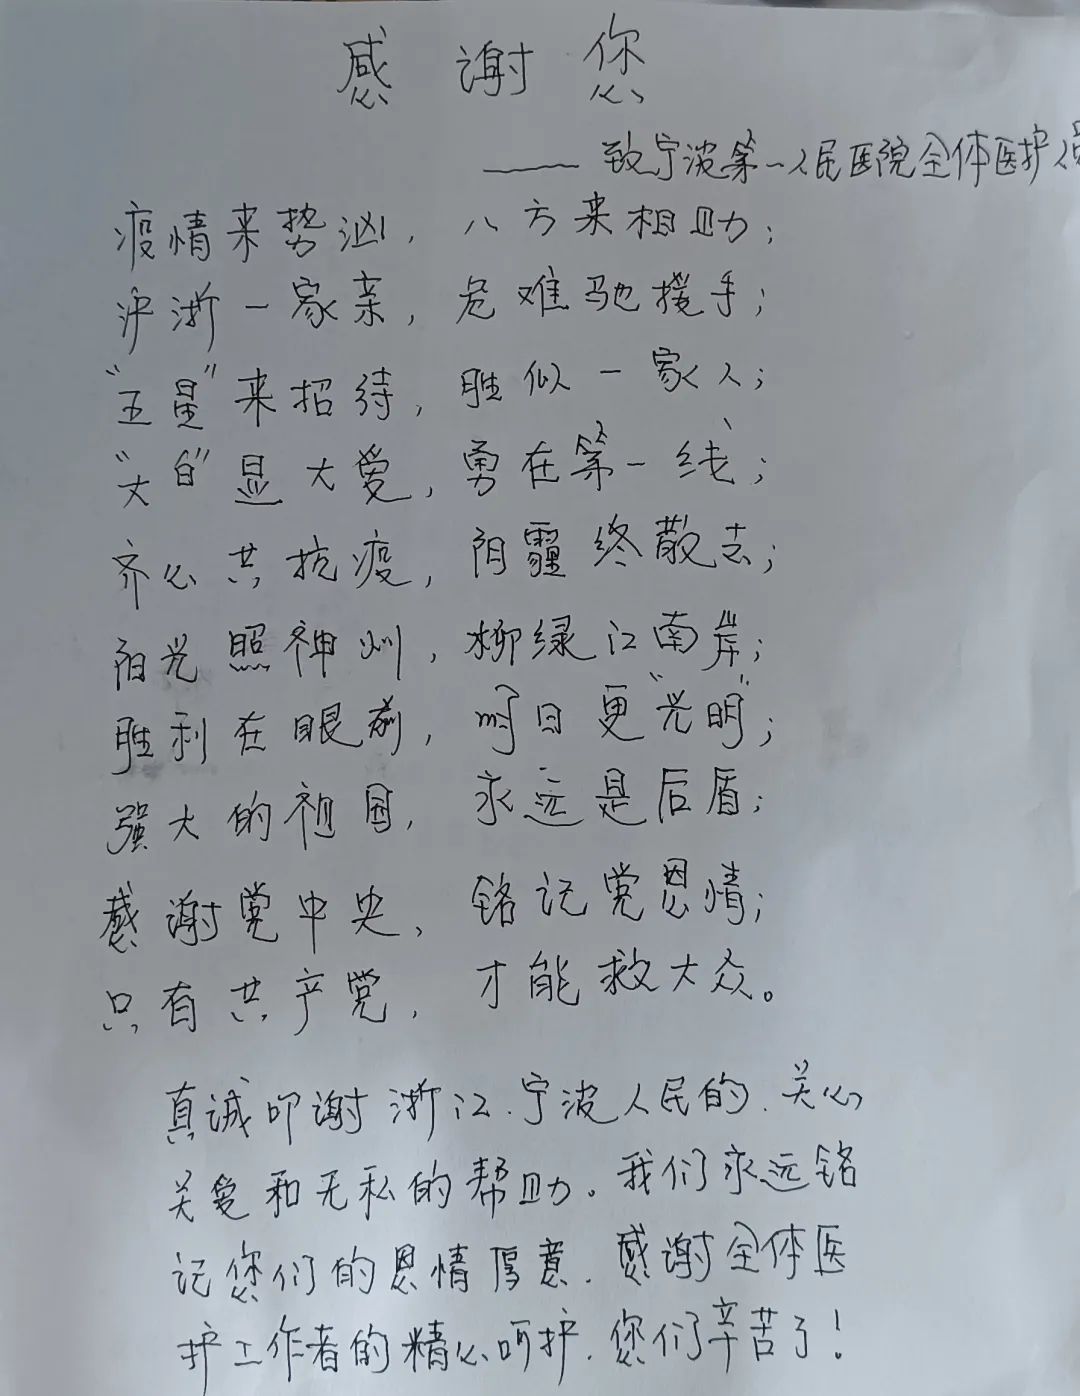 感谢您
——致宁波第一人民医院全体医护人员
疫情来势汹，八方来相助；
沪浙一家亲，危难驰援手；
“五星”来招待，胜似一家人；
“大白”显大爱，勇在第一线；
齐心共抗疫，阴霾终散去；
阳光照神州，柳绿江南岸；
胜利在眼前，明日更“光明”；
强大的祖国，永远是后盾；
感谢党中央，铭记党恩情；
只有共产党，才能救大众。
真诚叩谢浙江、宁波人民的、关心
关爱和无私的帮助。我们永远铭
记您们的恩情厚意。感谢全体医
护工作者的精心呵护，您们辛苦了！